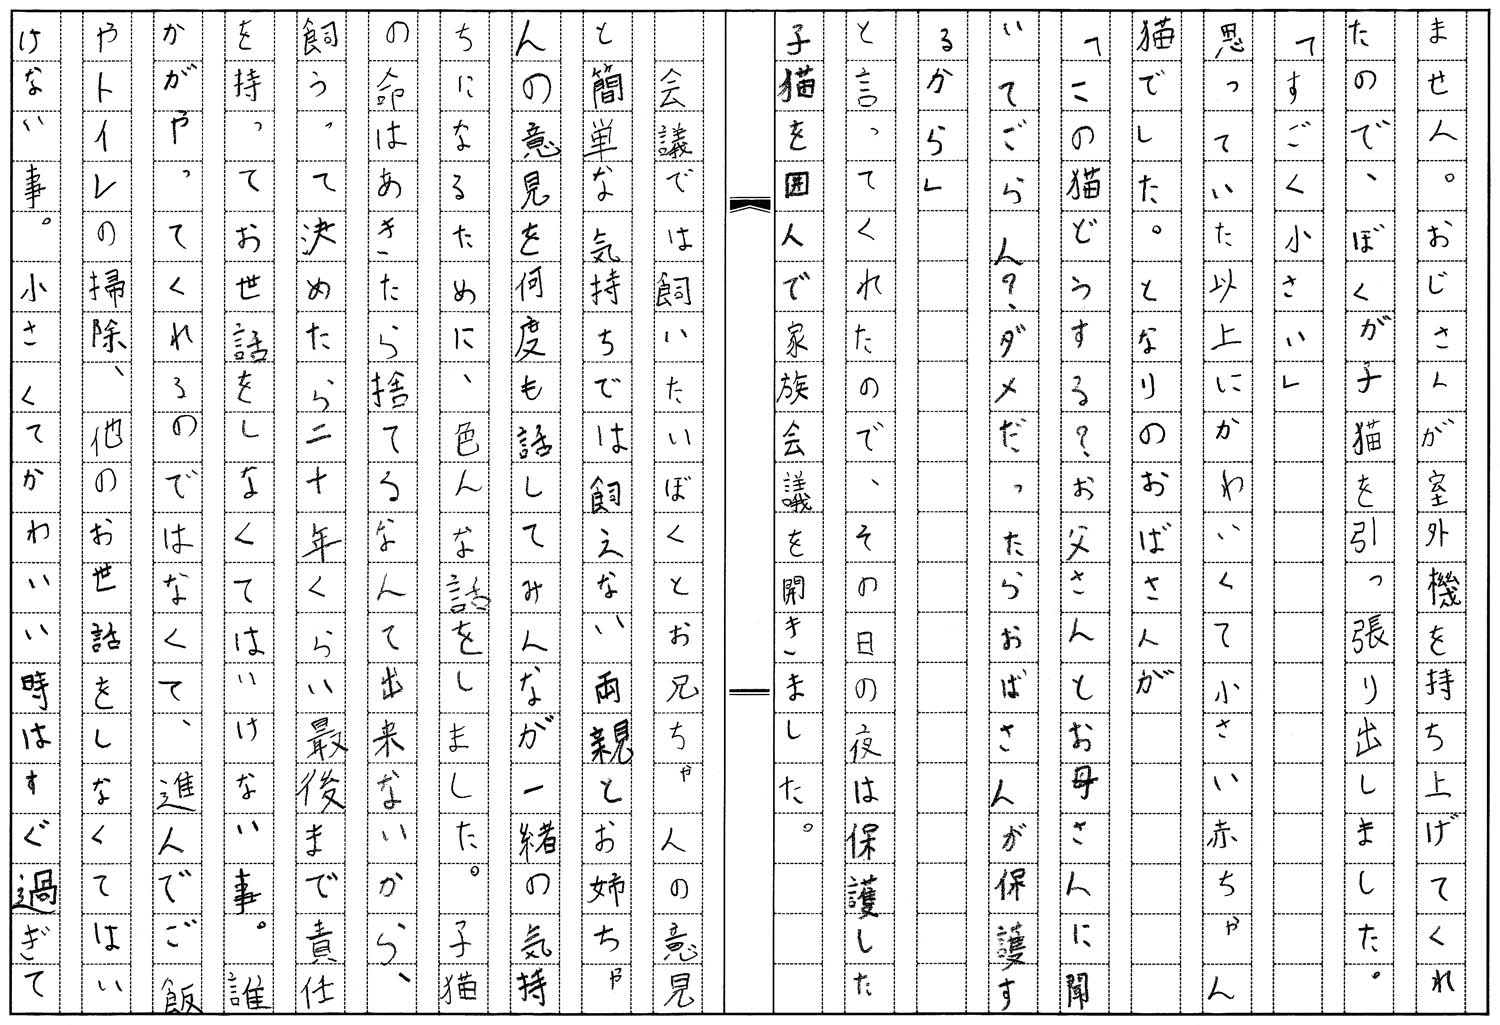 ません。おじさんが室外機を持ち上げてくれ
たので、ぼくが子猫を引っ張り出しました。
「すごく小さい」
思っていた以上にかわいくて小さい赤ちゃん
猫でした。となりのおばさんが
「この猫どうする?お父さんとお母さんに聞
いてごらん?、ダメだったらおばさんが保護す
るから」
と言ってくれたので、その日の夜は保護した
子猫を囲んで家族会議を開きました。
会議では飼いたいぼくとお兄ちゃんの意見
と簡単な気持ちでは飼えない両親とお姉ちゃ
んの意見を何度も話してみんなが一緒の気持
ちになるために、色んな話をしました。子猫
の命はあきたら捨てるなんて出来ないから、
飼うって決めたら二十年くらい最後まで責任
を持ってお世話をしなくてはいけない事。誰
かがやってくれるのではなくて、進んでご飯
やトイレの掃除、他のお世話をしなくてはい
けない事。小さくてかわいい時はすぐ過ぎて